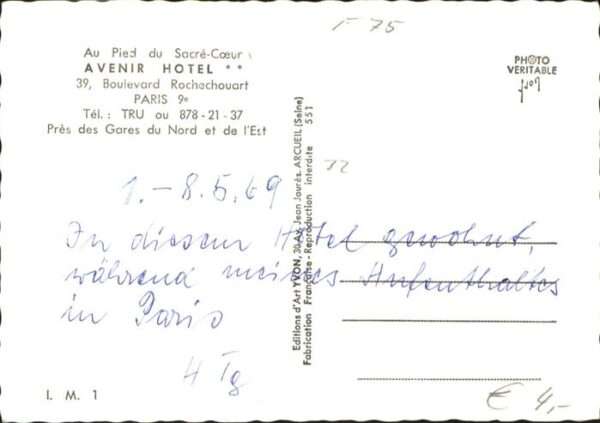 F 75
Au Pied du Sacré-Cœur
AVENIR HOTEL **
39, Boulevard Rochechouart
PARIS 9e
Tél. : TRU ou 878-21-37
Près des Gares du Nord et de l'Est
PHOTO
VERITABLE
Editions d'Art YVON, Jean Jaurès, ARCUEIL (Seine)
Fabrication Française - Reproduction interdite 551
1.-8.5.69
In diesem Hotel gewohnt,
während meines Aufenthaltes
in Paris
4 Tg
I. M. 1
€ 4,-